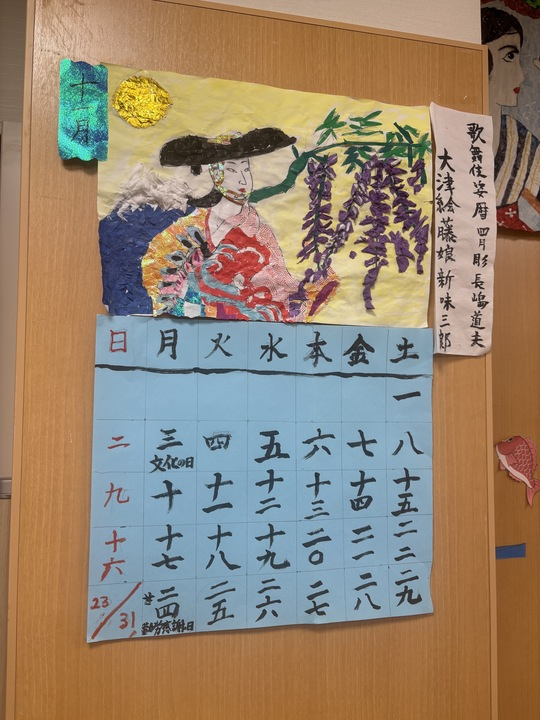 十一月
歌舞伎姿暦 四月 長嶋道夫
大津絵藤娘 新味三郎
日 月 火 水 本 金 土
一
二 三 四 五 六 七 八
文化の日
九 十 十一 十二 十三 十四 十五
十六 十七 十八 十九 二〇 二一 二二
23/31 二四 二五 二六 二七 二八 二九
勤労感謝の日